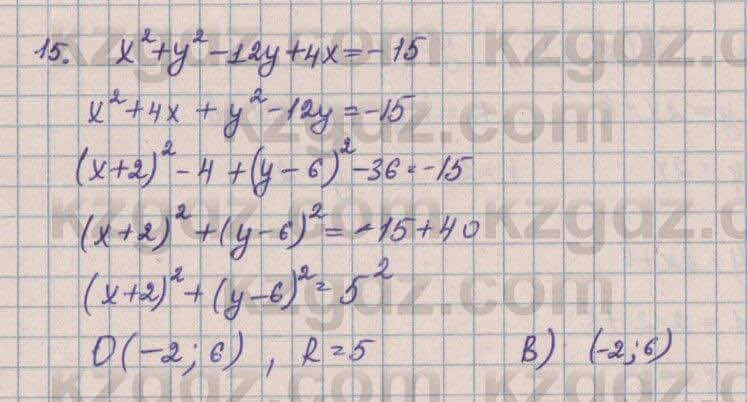 15. x²+y²-12y+4x=-15
x²+4x+y²-12y=-15
(x+2)²-4+(y-6)²-36=-15
(x+2)²+(y-6)²=-15+40
(x+2)²+(y-6)²=5²
O(-2;6), R=5 B) (-2;6)
kzgdz.com